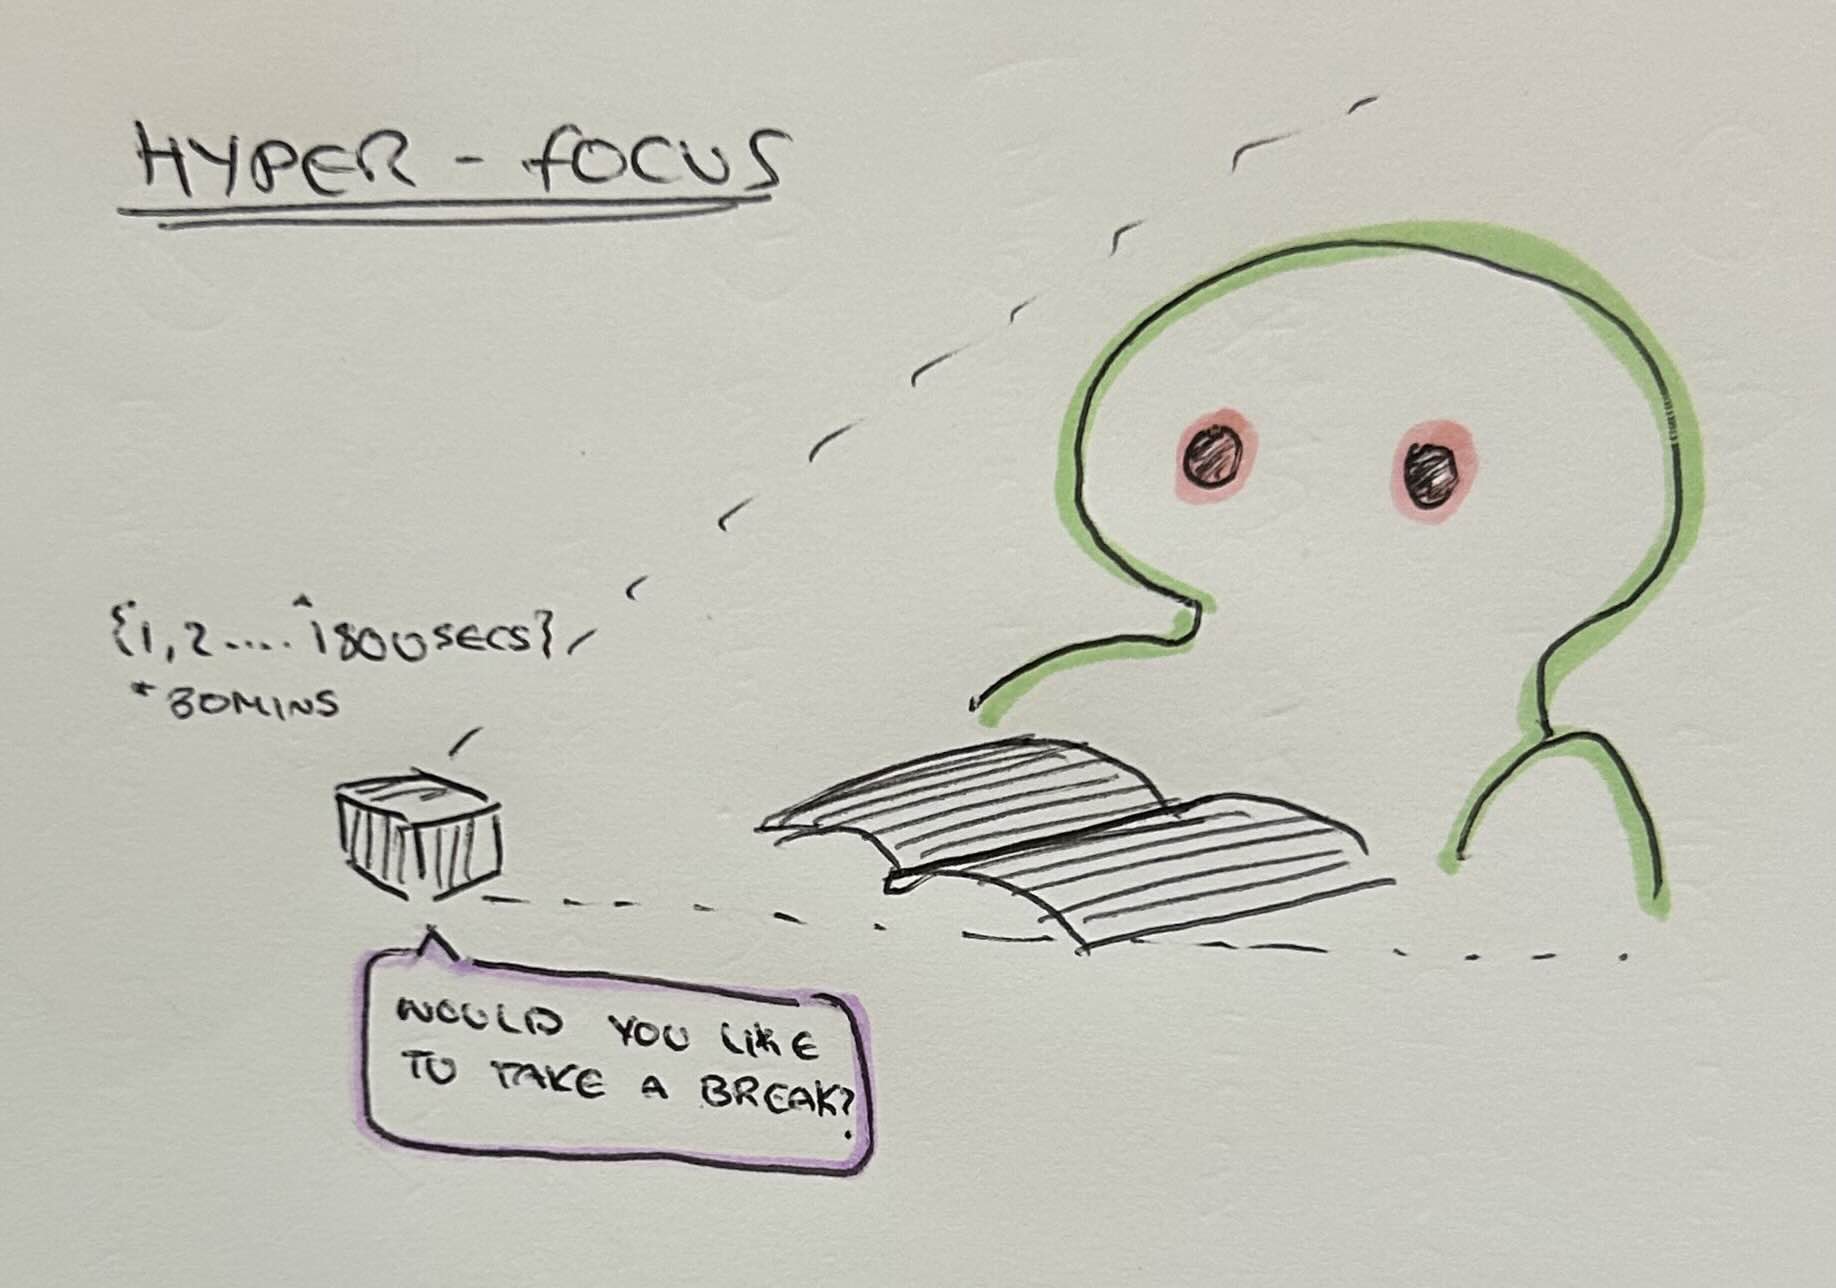 HYPER - FOCUS
{1, 2.... *1800SECS}
* 30MINS
WOULD YOU LIKE
TO TAKE A BREAK?